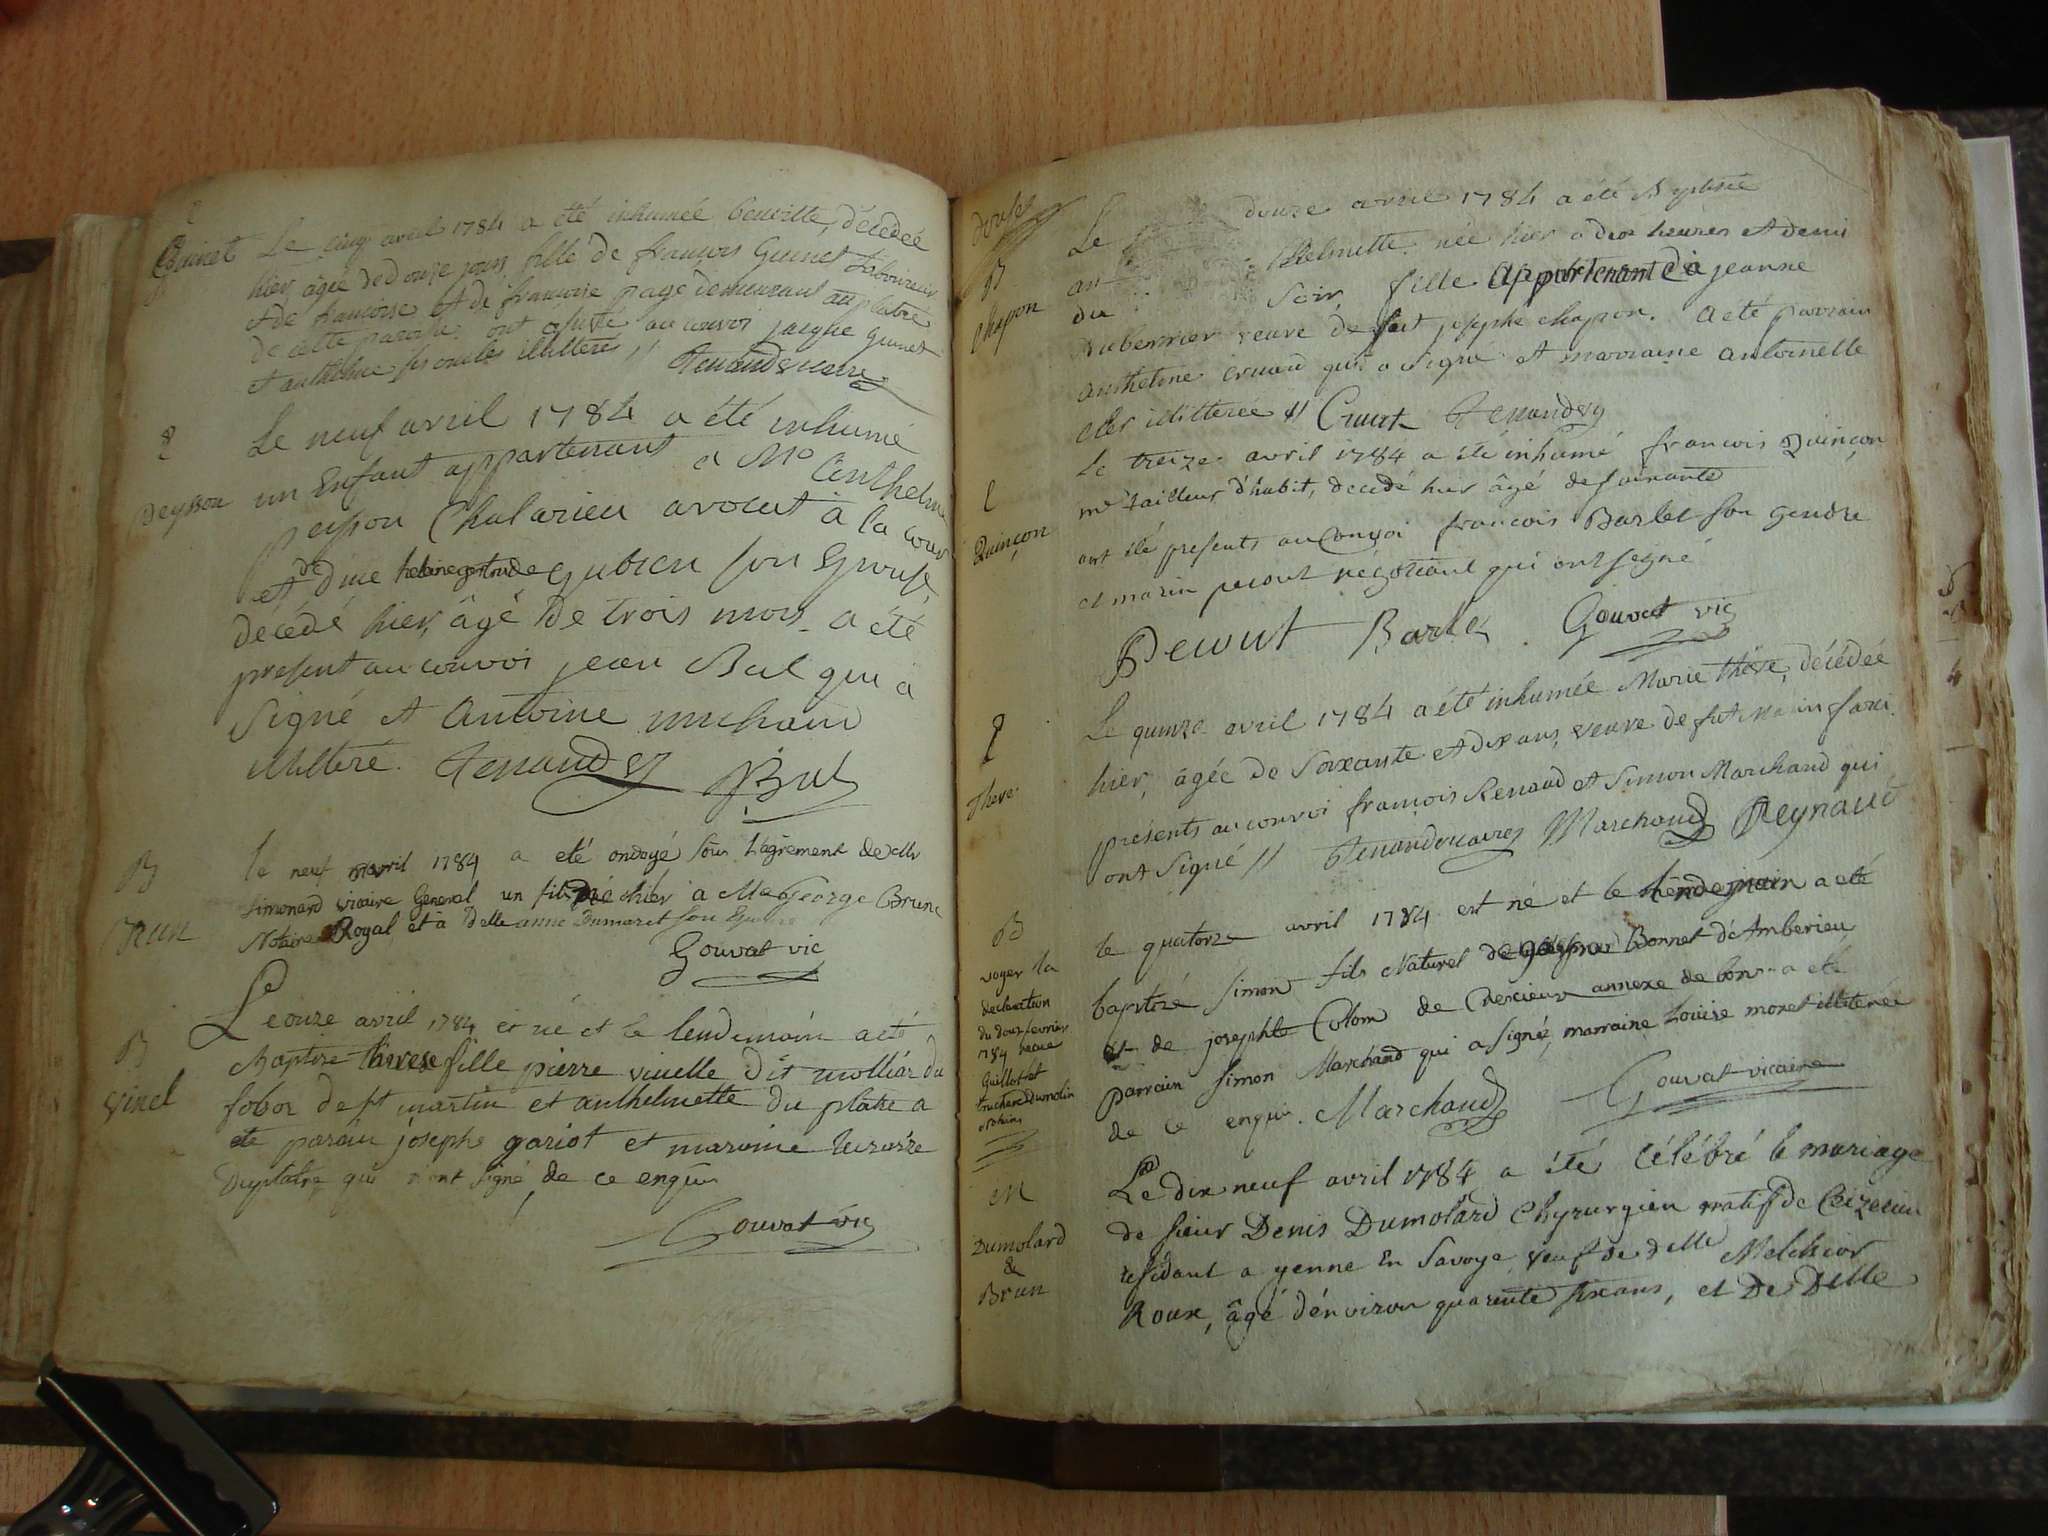 Guinet
Le cinq avril 1784 a été inhumée benoitte, décedée
hier, âgée de douze jours, fille de françois Guinet Laboureur
et de françoise et de françoise page demeurant au platre
de cette paroisse. ont assisté au convoi josephe guinet
et anthelme ses oncles illitteres //
Le neuf avril 1784 a été inhumé
peysson
un Enfant appartenant a Me Anthelme
peysson Chalarieu avocat à la cour
et de dme helaine gertrude gubien son Epouse,
décédé hier, âgé de trois mois. a été
présent au convoi jean Bal qui a
signé et Antoine michaud
illitteré. Renaud Bal
B
Brun
le neuf avril 1784 a eté ondoyé sous l'agrement de Mr
simonard vicaire General un fils né hier a Me George Brun
Notaire Royal et a Delle anne Dumaret son Epouse
Gouvat vic
B
vinel
Le onze avril 1784 est né et le lendemain a eté
Baptize thérese fille pierre viuelle dit molliar du
fobor de st martin et anthelmette du platre a
eté parain josephe gariot et maraine
Duplatre qui n'ont signé, de ce enquis
Gouvat vic
douze
B
chapon
Le douze avril 1784 a été Baptisée
an thelmette née hier a deux heures et demi
du soir, fille appartenant à jeanne
Aubernier veuve de fut josephe chapon. a eté parrain
Anthelme cruard qui a signé et marraine antoinette
cler illitterée //
Quinçon
Le treize avril 1784 a été inhumé françois Quinçon
me tailleur d'habit, decedé hier âgé de soixante
ont été presents au Convoi françois Barlet son gendre
et marin pecout négotiant qui ont signé
Pecout Barle Gouvat vic
Theve
Le quinze avril 1784 a été inhumée Marie Thève, décédée
hier, âgée de soixante et dix ans, veuve de fut Marin
présents au convoi françois Renaud et Simon Marchand qui
ont signé // Renaud vicaire Marchand Reynaud
B
voyez la
declaration
du douz fevrier
1784 recue
Guillot et
truchard Dumolin
le quatorze avril 1784 est né et le lendemain a eté
baptizé simon fils Naturel de gaspar Bonnet d'Amberieu
et de josephte Colom de Chexieux annexe de bons a eté
parrain simon Marchand qui a signé, marraine Louise moret illiterée
de ce enquis. Marchand Gouvat vicaire
M
Dumolard
&
Brun
Le dix neuf avril 1784 a été Célébré le mariage
de sieur Denis Dumolard Chyrurgien natif de Ceizerieu
residant a yenne en Savoye, veuf de delle Melchior
Roux, âgé d'environ quarente six ans, et De Delle